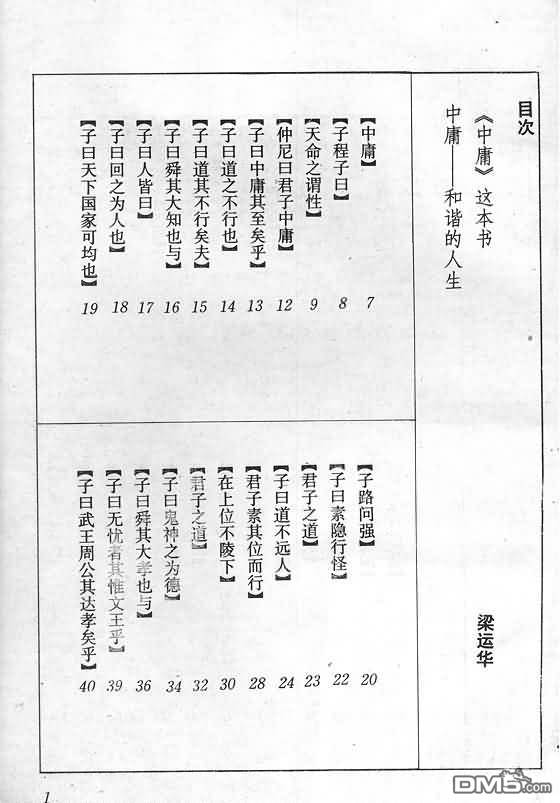 目次
《中庸》这本书
梁运华
中庸——和谐的人生
【中庸】 7
【子程子曰】 8
【天命之谓性】 9
【仲尼曰君子中庸】 12
【子曰中庸其至矣乎】 13
【子曰道之不行也】 14
【子曰道其不行矣夫】 15
【子曰舜其大知也与】 16
【子曰人皆曰】 17
【子曰回之为人也】 18
【子曰天下国家可均也】 19
【子路问强】 20
【子曰素隐行怪】 22
【君子之道】 23
【子曰道不远人】 24
【君子素其位而行】 28
【在上位不陵下】 30
【君子之道】 32
【子曰鬼神之为德】 34
【子曰舜其大孝也与】 36
【子曰无忧者其惟文王乎】 39
【子曰武王周公其达孝矣乎】 40
1
DM5.com